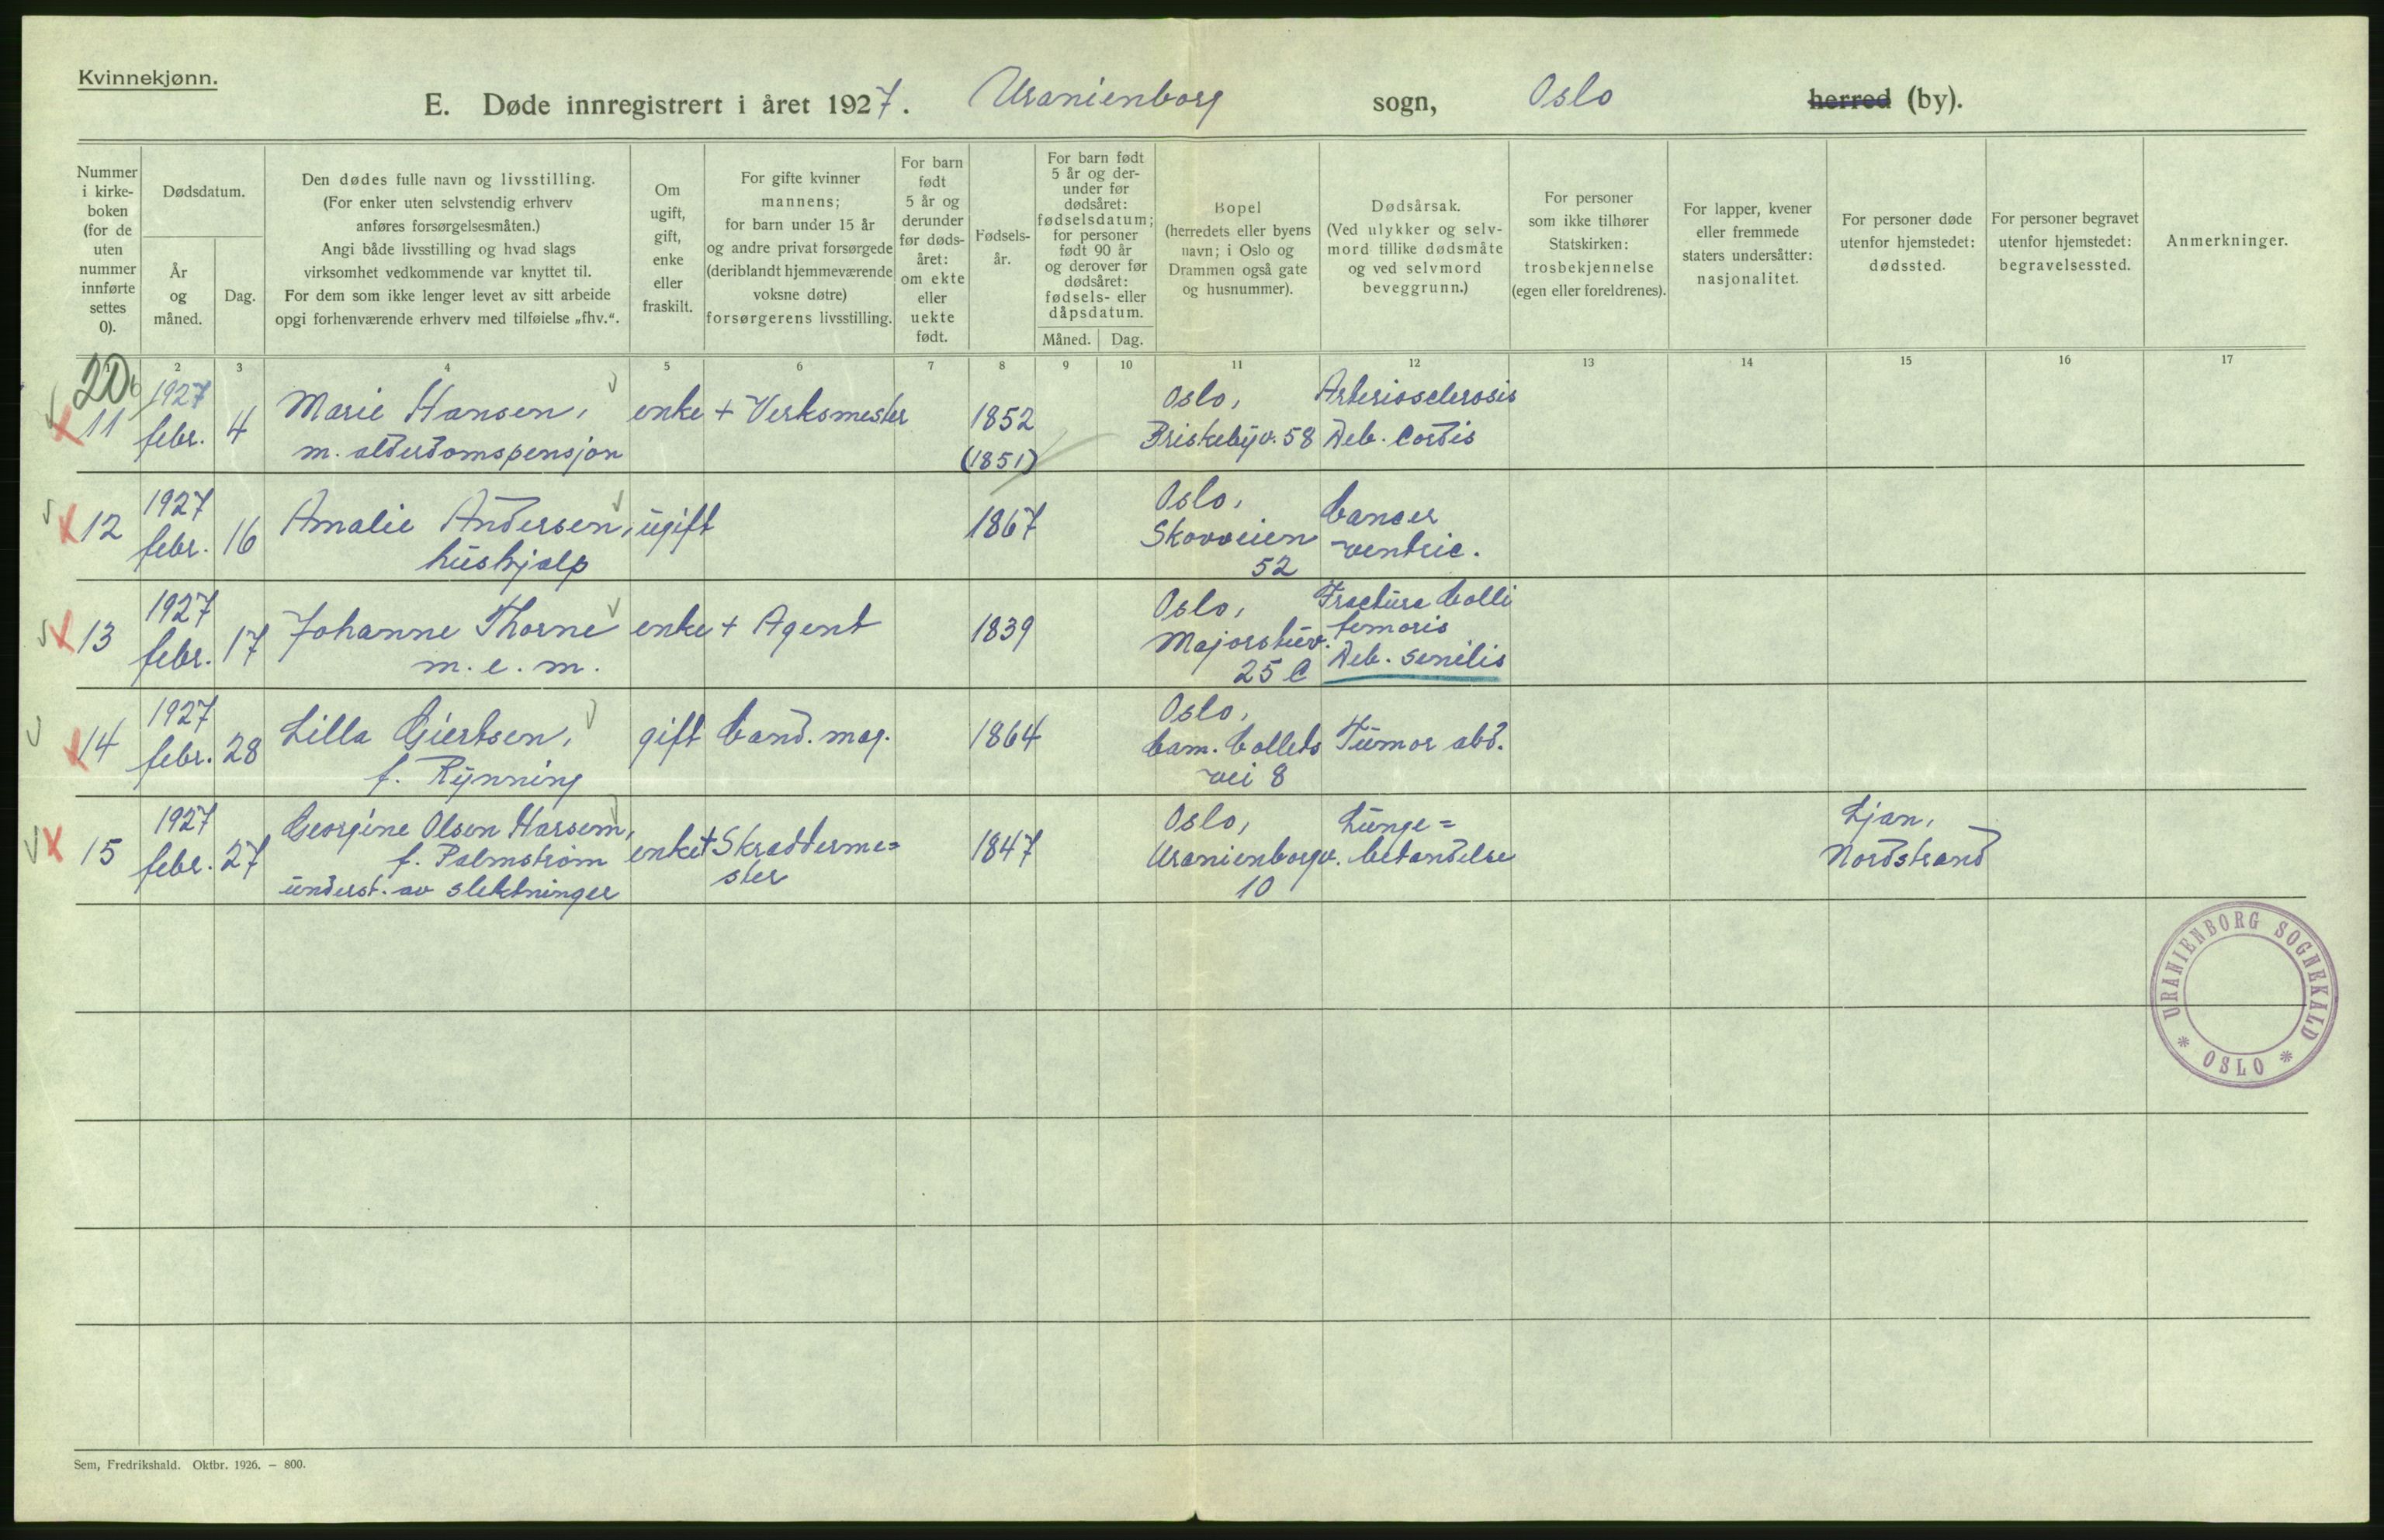 Kvinnekjønn.
E. Døde innregistrert i året 1927. Uranienborg sogn, Oslo herred (by).
Nummer i kirke- boken (for de uten nummer innførte settes 0).
Dødsdatum.
År og måned.
Dag.
Den dødes fulle navn og livsstilling.
(For enker uten selvstendig erhverv
anføres forsørgelsesmåten.)
Angi både livsstilling og hvad slags
virksomhet vedkommende var knyttet til.
For dem som ikke lenger levet av sitt arbeide
opgi forhenværende erhverv med tilføielse „fhv.“.
Om ugift, gift, enke eller fraskilt.
For gifte kvinner
mannens;
for barn under 15 år
og andre privat forsørgede
(deriblandt hjemmeværende
voksne døtre)
forsørgerens livsstilling.
For barn født 5 år og derunder før døds- året: om ekte eller uekte født.
Fødsels- år.
For barn født
5 år og der-
under før
dødsåret:
fødselsdatum;
for personer
født 90 år
og derover før
dødsåret:
fødsels- eller
dåpsdatum.
Måned. Dag.
Bopel
(herredets eller byens
navn; i Oslo og
Drammen også gate
og husnummer).
Dødsårsak.
(Ved ulykker og selv-
mord tillike dødsmåte
og ved selvmord
beveggrunn.)
For personer
som ikke tilhører
Statskirken:
trosbekjennelse
(egen eller foreldrenes).
For lapper, kvener
eller fremmede
staters undersåtter:
nasjonalitet.
For personer døde
utenfor hjemstedet:
dødssted.
For personer begravet
utenfor hjemstedet:
begravelsessted.
Anmerkninger.
1 2 3 4 5 6 7 8 9 10 11 12 13 14 15 16 17
11 1927 febr. 4 Marie Hansen, m. alderdomspensjon enke + Verksmester 1852 (1851) Oslo, Briskebyv. 58 Arteriosclerosis Deb. Cordis
12 1927 febr. 16 Amalie Andersen, hushjelp ugift 1867 Oslo, Skovveien 52 Cancer ventric.
13 1927 febr. 17 Johanne Thorne m. e. m. enke + Agent 1839 Oslo, Majorstuv. 25 C Fractura Colli femoris Deb. senilis
14 1927 febr. 28 Lilla Giertsen, f. Rynning gift Cand. mag. 1864 Oslo, Cam. Colletts vei 8 Tumor abd.
15 1927 febr. 27 Georgine Olsen Harsem, f. Palmstrøm underst. av slektninger enke + Skreddermester 1847 Oslo, Uranienborgv. 10 Lunge= betendelse Ljan, Nordstrand
URANIENBORG SOGNEKALD * OSLO *
Sem, Fredrikshald. Oktbr. 1926. – 800.